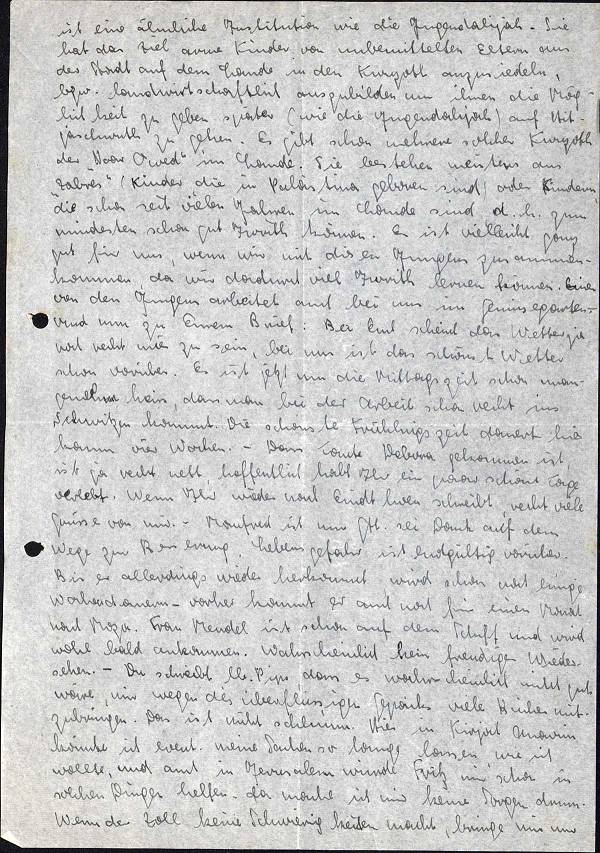 ist eine ähnliche Institution wie die Jugendalijah. Sie
hat das Ziel arme Kinder von unbemittelten Eltern aus
der Stadt auf dem Lande in den Kwuzoth anzusiedeln,
bzw. landwirtschaftlich auszubilden um ihnen die Mög-
lichkeit zu geben später (wie die Jugendalijah) auf Hit-
jaschwuth zu gehen. Es gibt schon mehrere solcher Kwuzoth
der "Noar Owed" im Lande. Sie bestehen meistens aus
"Zabres" (Kinder die in Palästina geboren sind) oder Kindern
die schon seit vielen Jahren im Lande sind d. h. zum
mindesten schon gut Iwrith können. Es ist vielleicht ganz
gut für uns, wenn wir mit diesen Jungens zusammen-
kommen, da wir dadurch viel Iwrith lernen können. Einer
von den Jungens arbeitet auch bei uns im Gemüsegarten.-
Und nun zu Eurem Brief: Bei Euch scheint das Wetter ja
noch recht mies zu sein, bei uns ist das schönste Wetter
schon vorüber. Es ist jetzt um die Mittagszeit schon man-
genehm heiss, dass man bei der Arbeit schon recht ins
Schwitzen kommt. Die schönste Frühlingszeit dauert hier
kaum vier Wochen. - Dass Tante Debora gekommen ist,
ist ja recht nett, hoffentlich habt Ihr ein paar schöne Tage
verlebt. Wenn Ihr wieder nach Eindthoven schreibt, recht viele
Grüsse von mir. - Manfred ist nun Gtt. sei Dank auf dem
Wege zur Besserung. Lebensgefahr ist endgültig vorüber.
Bis er allerdings wieder herkommt wird schon noch einige
Wochen dauern - vorher kommt er auch noch für einen Monat
nach Moza. Frau Mendel ist schon auf dem Schiff und wird
wohl bald ankommen. Wahrscheinlich kein freudiges Wieder-
sehen. - Du schreibst lb. Pips dass es wahrscheinlich nicht gut
wäre, mir wegen des überflüssigen Gepäcks viele Bücher mit-
zubringen. Das ist nicht schlimm. Hier in Kirjat Anawim
könnte ich event. meine Sachen so lange lassen, wie ich
wollte, und auch in Jerusalem würde Fritz mir schon in
solchen Dingen helfen. Da mache ich mir keine Sorgen drum.
Wenn der Zoll keine Schwierigkeiten macht, bringe mir nur